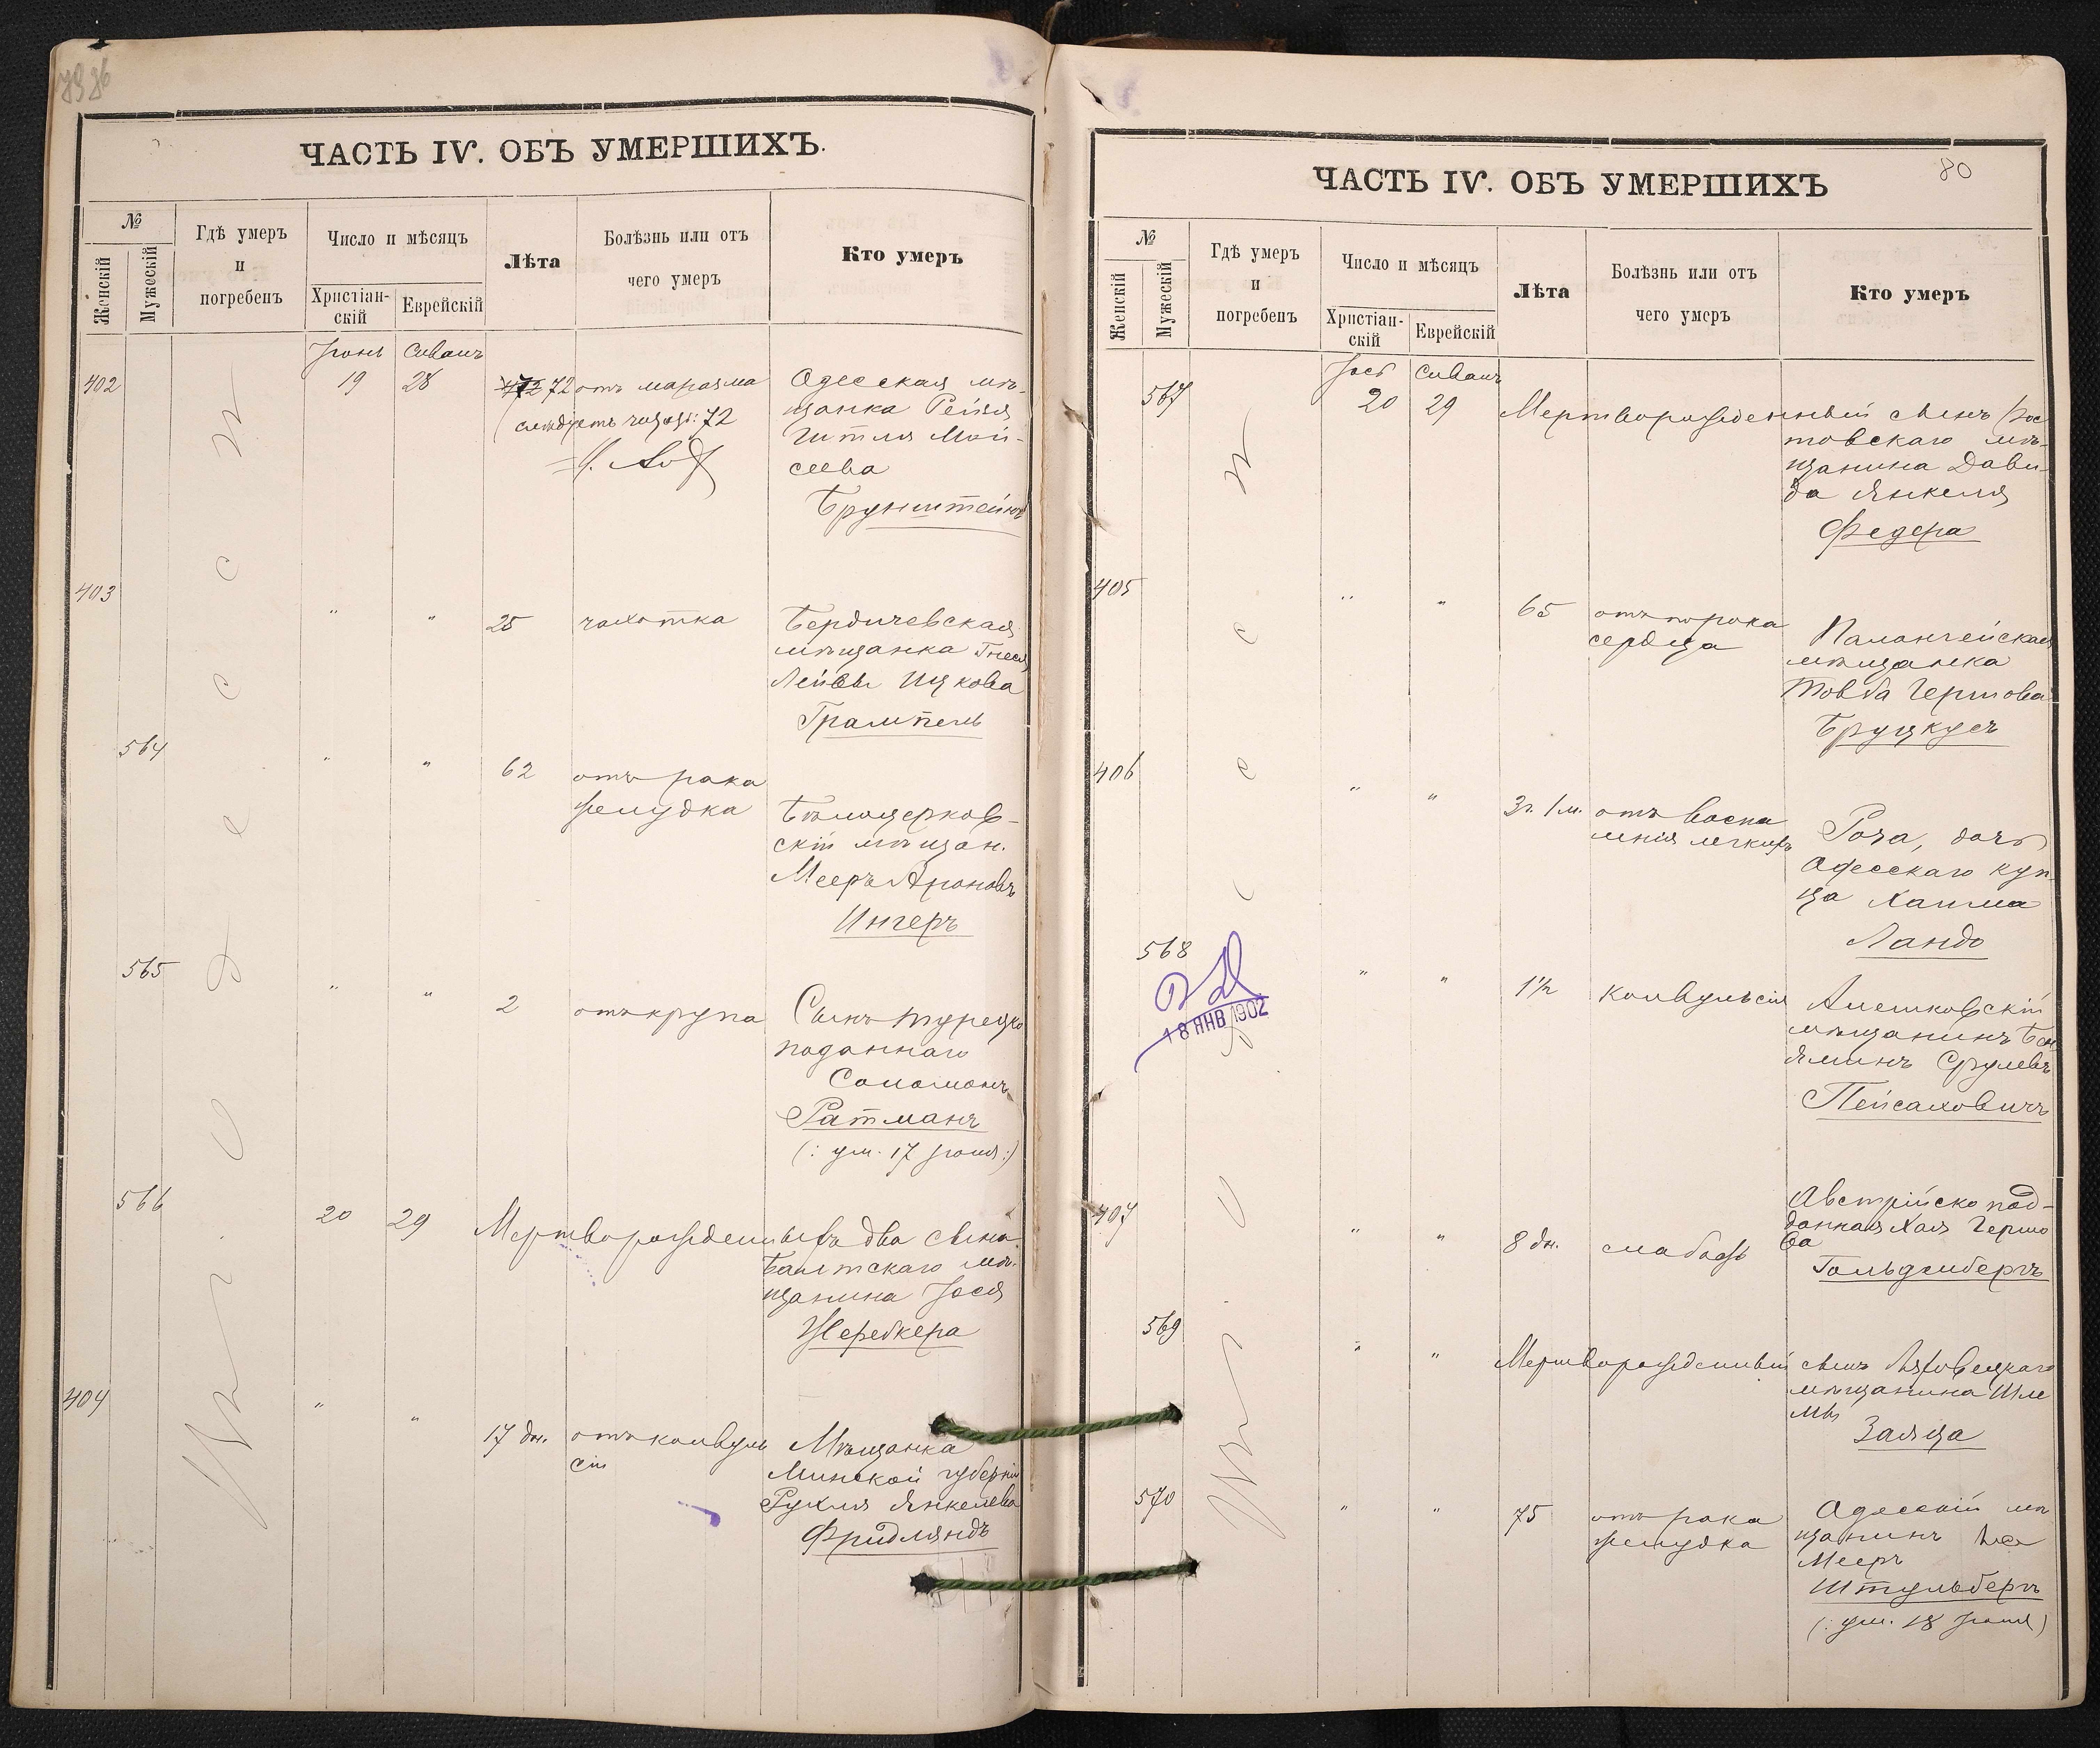 ЧАСТЬ IV. ОБЪ УМЕРШИХЪ.
№
Женскій
Мужескій
Гдѣ умеръ
и
погребенъ
Число и мѣсяцъ
Христіан-
скій
Еврейскій
Лѣта
Болѣзнь или отъ
чего умеръ
Кто умеръ
Іюнь Сиванъ
402 19 28 72 отъ маразма Одесская мѣ-
щанка Рейзя
слѣдуетъ 72
Гитля Мой-
сеева
Брунштейнъ
403 " " 25 чахотка Бердичевская
мѣщанка Гнеся
Лейвы Ицкова
Грампель
564 " " 62 отъ рака
желудка
Бѣлоцерков-
скій мѣщан.
Мееръ Ароновъ
Ингеръ
565 " " 2 отъ крупа Сынъ турецко
поданнаго
Соломонъ
Ратманъ
(: ум. 17 іюня :)
566 20 29 Мертворожденныхъ два сына
Балтскаго мѣ-
щанина Іося
Жеребкера
404 " " 17 дн. отъ конвуль
сіи
Мѣщанка
Минской губерніи
Рухля Янкелева
Фридляндъ
ЧАСТЬ IV. ОБЪ УМЕРШИХЪ
80
№
Женскій
Мужескій
Гдѣ умеръ
и
погребенъ
Число и мѣсяцъ
Христіан-
скій
Еврейскій
Лѣта
Болѣзнь или отъ
чего умеръ
Кто умеръ
Сиванъ
567 20 29 Мертворожденный сынъ Рос
товскаго мѣ-
щанина Дави-
да Янкеля
Федера
405 " " 65 отъ порока
сердца
Паланчейская
мѣщанка
Товба Гершова
Бруцкусъ
406 " " 3 г. 1 м. отъ воспа
ленія легкихъ
Роза, дочь
Одесскаго куп-
ца Хаима
Ландо
568 " " 1½ конвульсія Алешковскій
мѣщанинъ Бен
яминъ Срулевъ
Пейсаховичъ
18 ЯНВ 1902
407 " " 8 дн. слабость
Австрійско под-
данная Хая Гершо
ва
Гольдгиберъ
569 " " Мертворожденный сынъ Ляховецкаго
мѣщанина Шле
мы
Заяца
570 " " 75 отъ рака
желудка
Одесскій мѣ
щанинъ
Мееръ
Штульберъ
(: ум. 18 іюня)